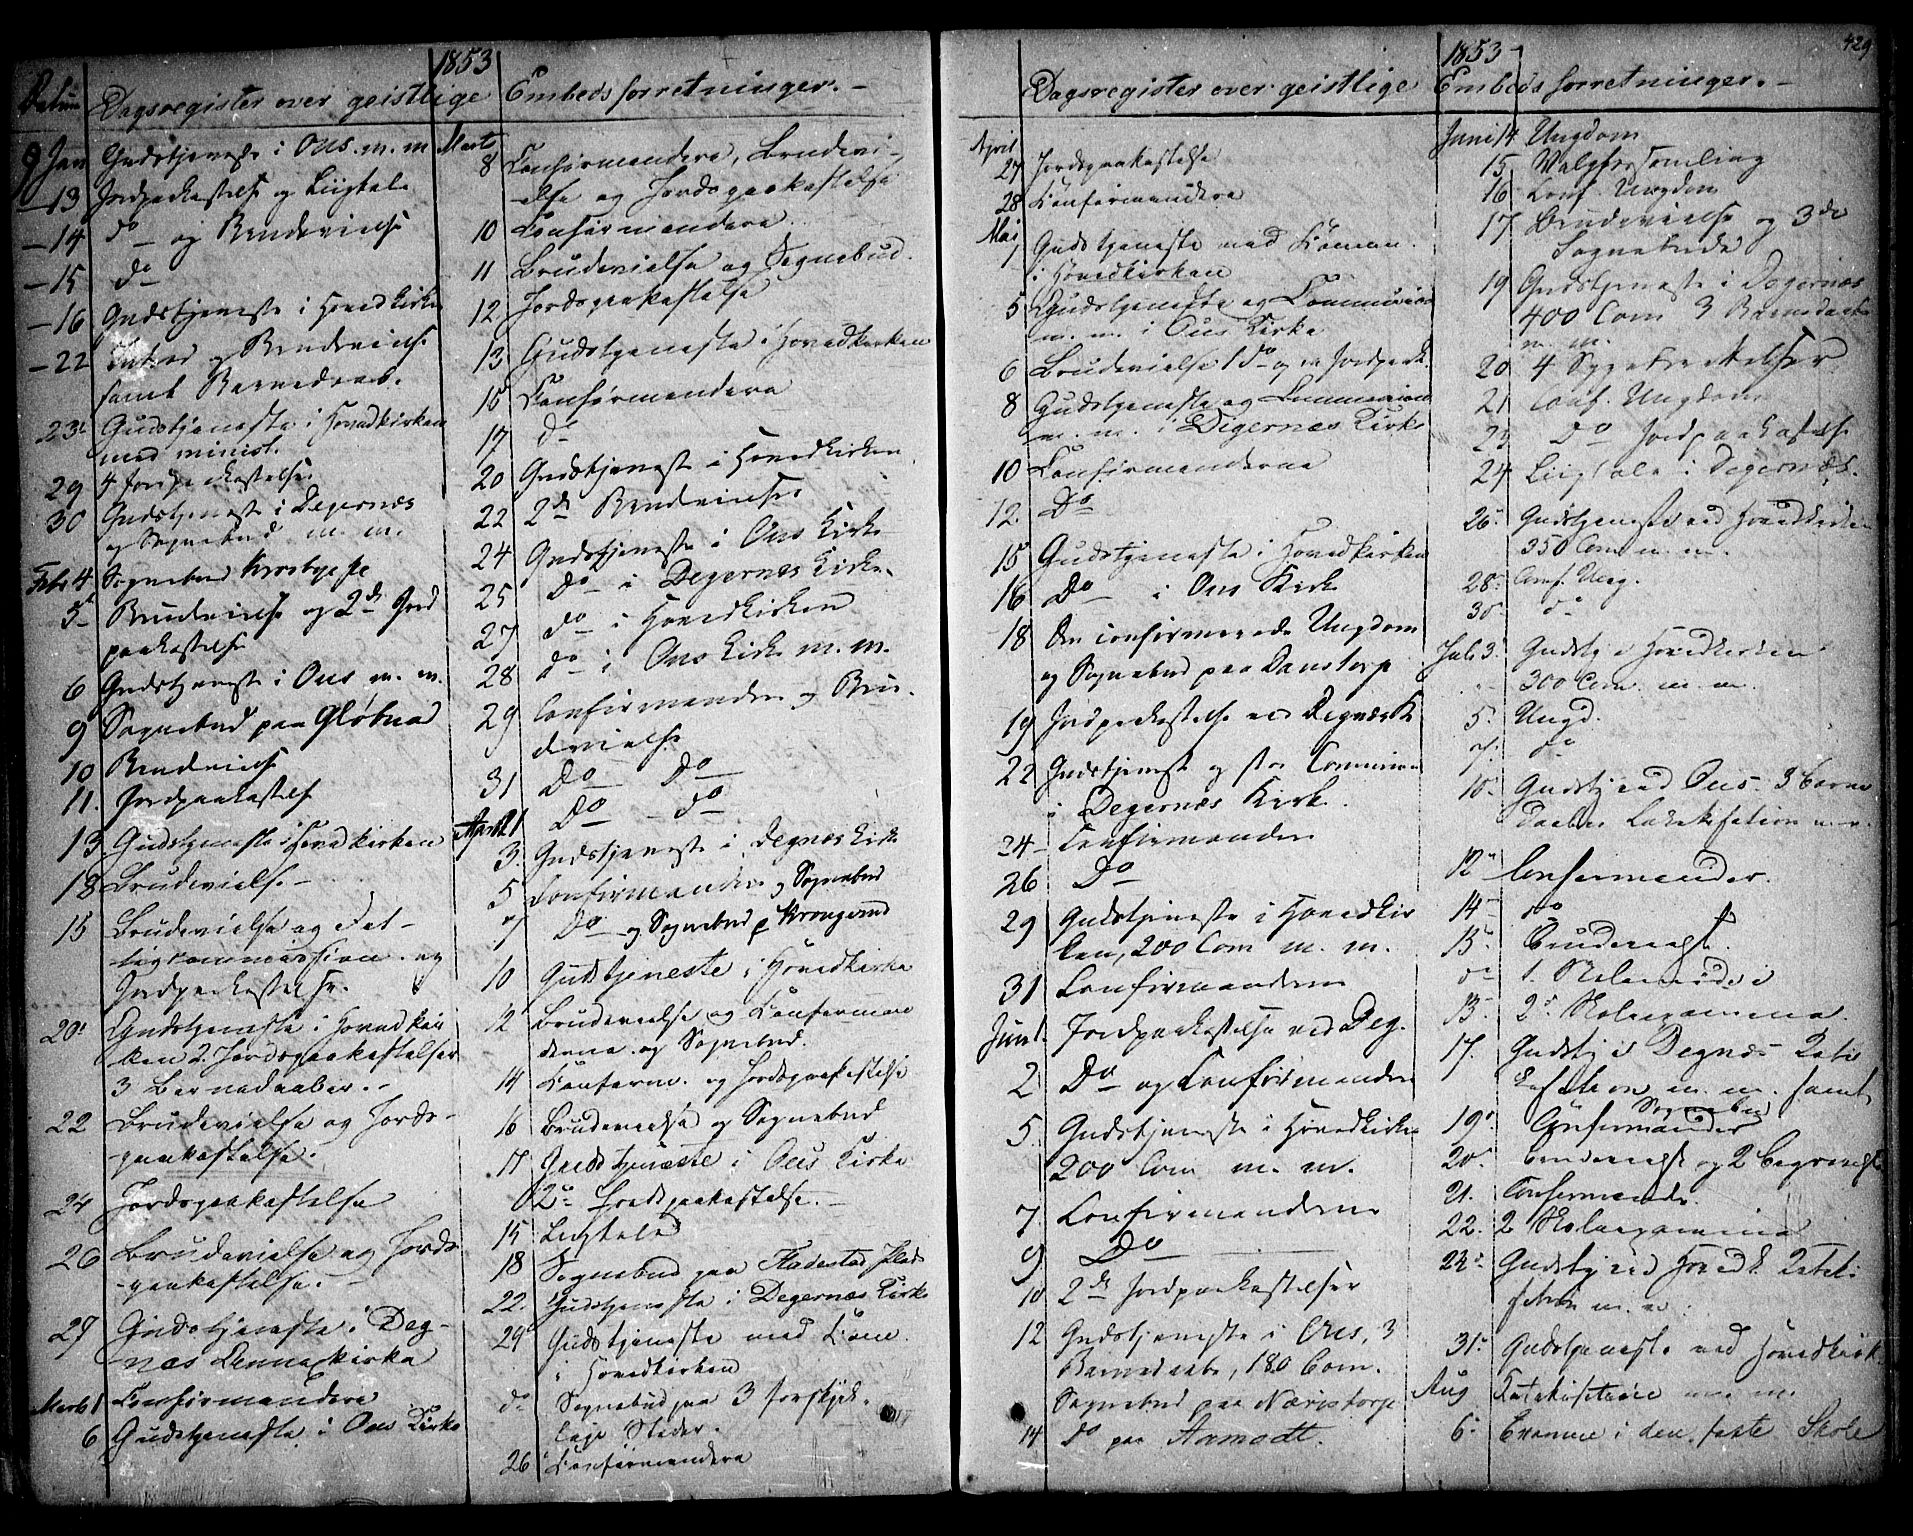 1853
Datum Dagsregister over geistlige Embedsforretninger. -
9 Jan Gudstjeneste i Ous m. m
- 13 Jordpaakastelse og Liigtale
- 14 do - og Brudevielse
- 15 do
- 16 Gudstjeneste i Hovedkirken
- 22 og Brudevielse
samt Barnedaab.
23 Gudstjeneste i Hovedkirken
med minist.
29 4 Jordpaakastelse
30 Gudstjeneste i Degernæs
og Sognebud m. m.
Febr 4 Sognebud Krosbye
5 Brudevielse og 2de Jord
paakastelse
6 Gudstjeneste i Ous m. m.
9 Sognebud paa Gløbnad
10 Brudevielse
11. Jordpaakastelse
13 Gudstjeneste i Hovedkirken
18 Brudevielse -
15 Brudevielse og Fat-
tigkommission og
Jordpaakastelse.
20 Gudstjeneste i Hovedkir
ken 2 Jordspaakastelser
3 Barnedaaber. -
22 Brudevielse og Jords-
paakastelse. -
24 Jordspaakastelse
26 Brudevielse og Jords-
paakastelse. -
27 Gudstjeneste i Deg-
næs Annexkirke
Marts 1 Confirmandere
6 Gudstjeneste i Ous Kirke
Marts
8 Confirmandere, Brudevi-
else og Jordspaakastelse
10 Confirmandere
11 Brudevielse og Sognebud.
12 Jordspaakastelse
13. Gudstjeneste i Hovedkirken
15 Confirmandere
17 do
20 Gudstjeneste i Hovedkirken
22 2de Brudevielser
24 Gudstjeneste i Ous Kirke
25 Do i Degernæs Kirke
27 do i Hovedkirken
28 do i Ous Kirke m. m.
29 Confirmander og Bru-
devielse
31 Do Do
April 1 Do - do
3. Gudstjeneste i Degnæs Kirke
5 Confirmander og Sognebud
7 Do og Sognebud p
10 Gudstjeneste i Hovedkirke
12 Brudevielse og Confirman
derne og Sognebud.
14 Confirm. og Jordspaakastelse
16 Brudevielse og Sognebud
17 Gudstjeneste i Ous Kirke
2 Jordspaakastelse. -
15 Liigtale
18 Sognebud paa Hadestad Plads
22. Gudstjeneste i Degernæs Kirke
29 Gudstjeneste med Kom.
i Hovedkirken
do Sognebud paa 3 forskjel-
lige Steder.
26 Confirmandere
1853
429
Dagsregister over geistlige Embedsforretninger. -
April
27 Jordspaakastelse
28 Confirmandere
Mai
1 Gudstjeneste med Kommun.
i Hovedkirken
5 Gudstjeneste og Communion
m. m. i Ous Kirke
6 Brudevielse 1 do og en Jordpaak.
8 Gudstjeneste og Communion
m. m. i Degernæs Kirke
10 Confirmanderne
12. Do
15 Gudstjeneste i Hovedkirken
16 Do i Ous Kirke
18 Den confirmerede Ungdom
og Sognebud paa Danstorp
19 Jordpaakastelse ved Degnæs K
22 Gudstjeneste og stor Communion
i Degernæs Kirke.
24 - Confirmander
26 Do
29 Gudstjeneste i Hovedkir
ken, 200 Com m. m.
31 Confirmandere
Juni 1. Jordpaakastelse ved Deg.
2 Do og Confirmandere
5. Gudstjeneste i Hovedkirken
200 Com m. m.
7 Confirmanderne
9 Do
10 2de Jordpaakastelser
12 Gudstjeneste i Ous, 3
Barnedaabe, 180 Com.
Sognebud paa Næristorp
14 do paa Aamodt.
Juni 14 Ungdom
15 Valgforsamling
16 Conf. Ungdom
17 Brudevielse og 3de
Sognebude
19 Gudstjeneste i Degernæs
400 Com 3 Barnedaab
m. m.
20 4 Sygebesøgelser
21 Conf. Ungdom
23 Do Jordpaakastelse
24 Liigtale i Degernæs.
26 Gudstjeneste ved Hovedkirken
350 Com m. m.
28 Conf. Ung.
30 do
Juli 3. Gudstj i Hovedkirken
300 Com. m. m.
5. Ungd.
7. do
10 Gudstj ved Ous - 3 Barne
daaber Catekisation m. m.
12 Confirmander.
14 do
15 Brudevielse.
do 1. Skolemøde i
13 2 Skoleexamina.
17. Gudstj i Degnæs Kate
kisation m. m. samt
Sognebud
19 Confirmander
20 Brudevielse og 2 Begravelse
21. Confirmander.
22. 2 Skoleexamina
24 Gudstj ved Hovedk. Kateki
sation m. m.
31 Gudstjeneste ved Hovedkirk.
Aug Katekisation m. m.
6 Examen i den faste Skole